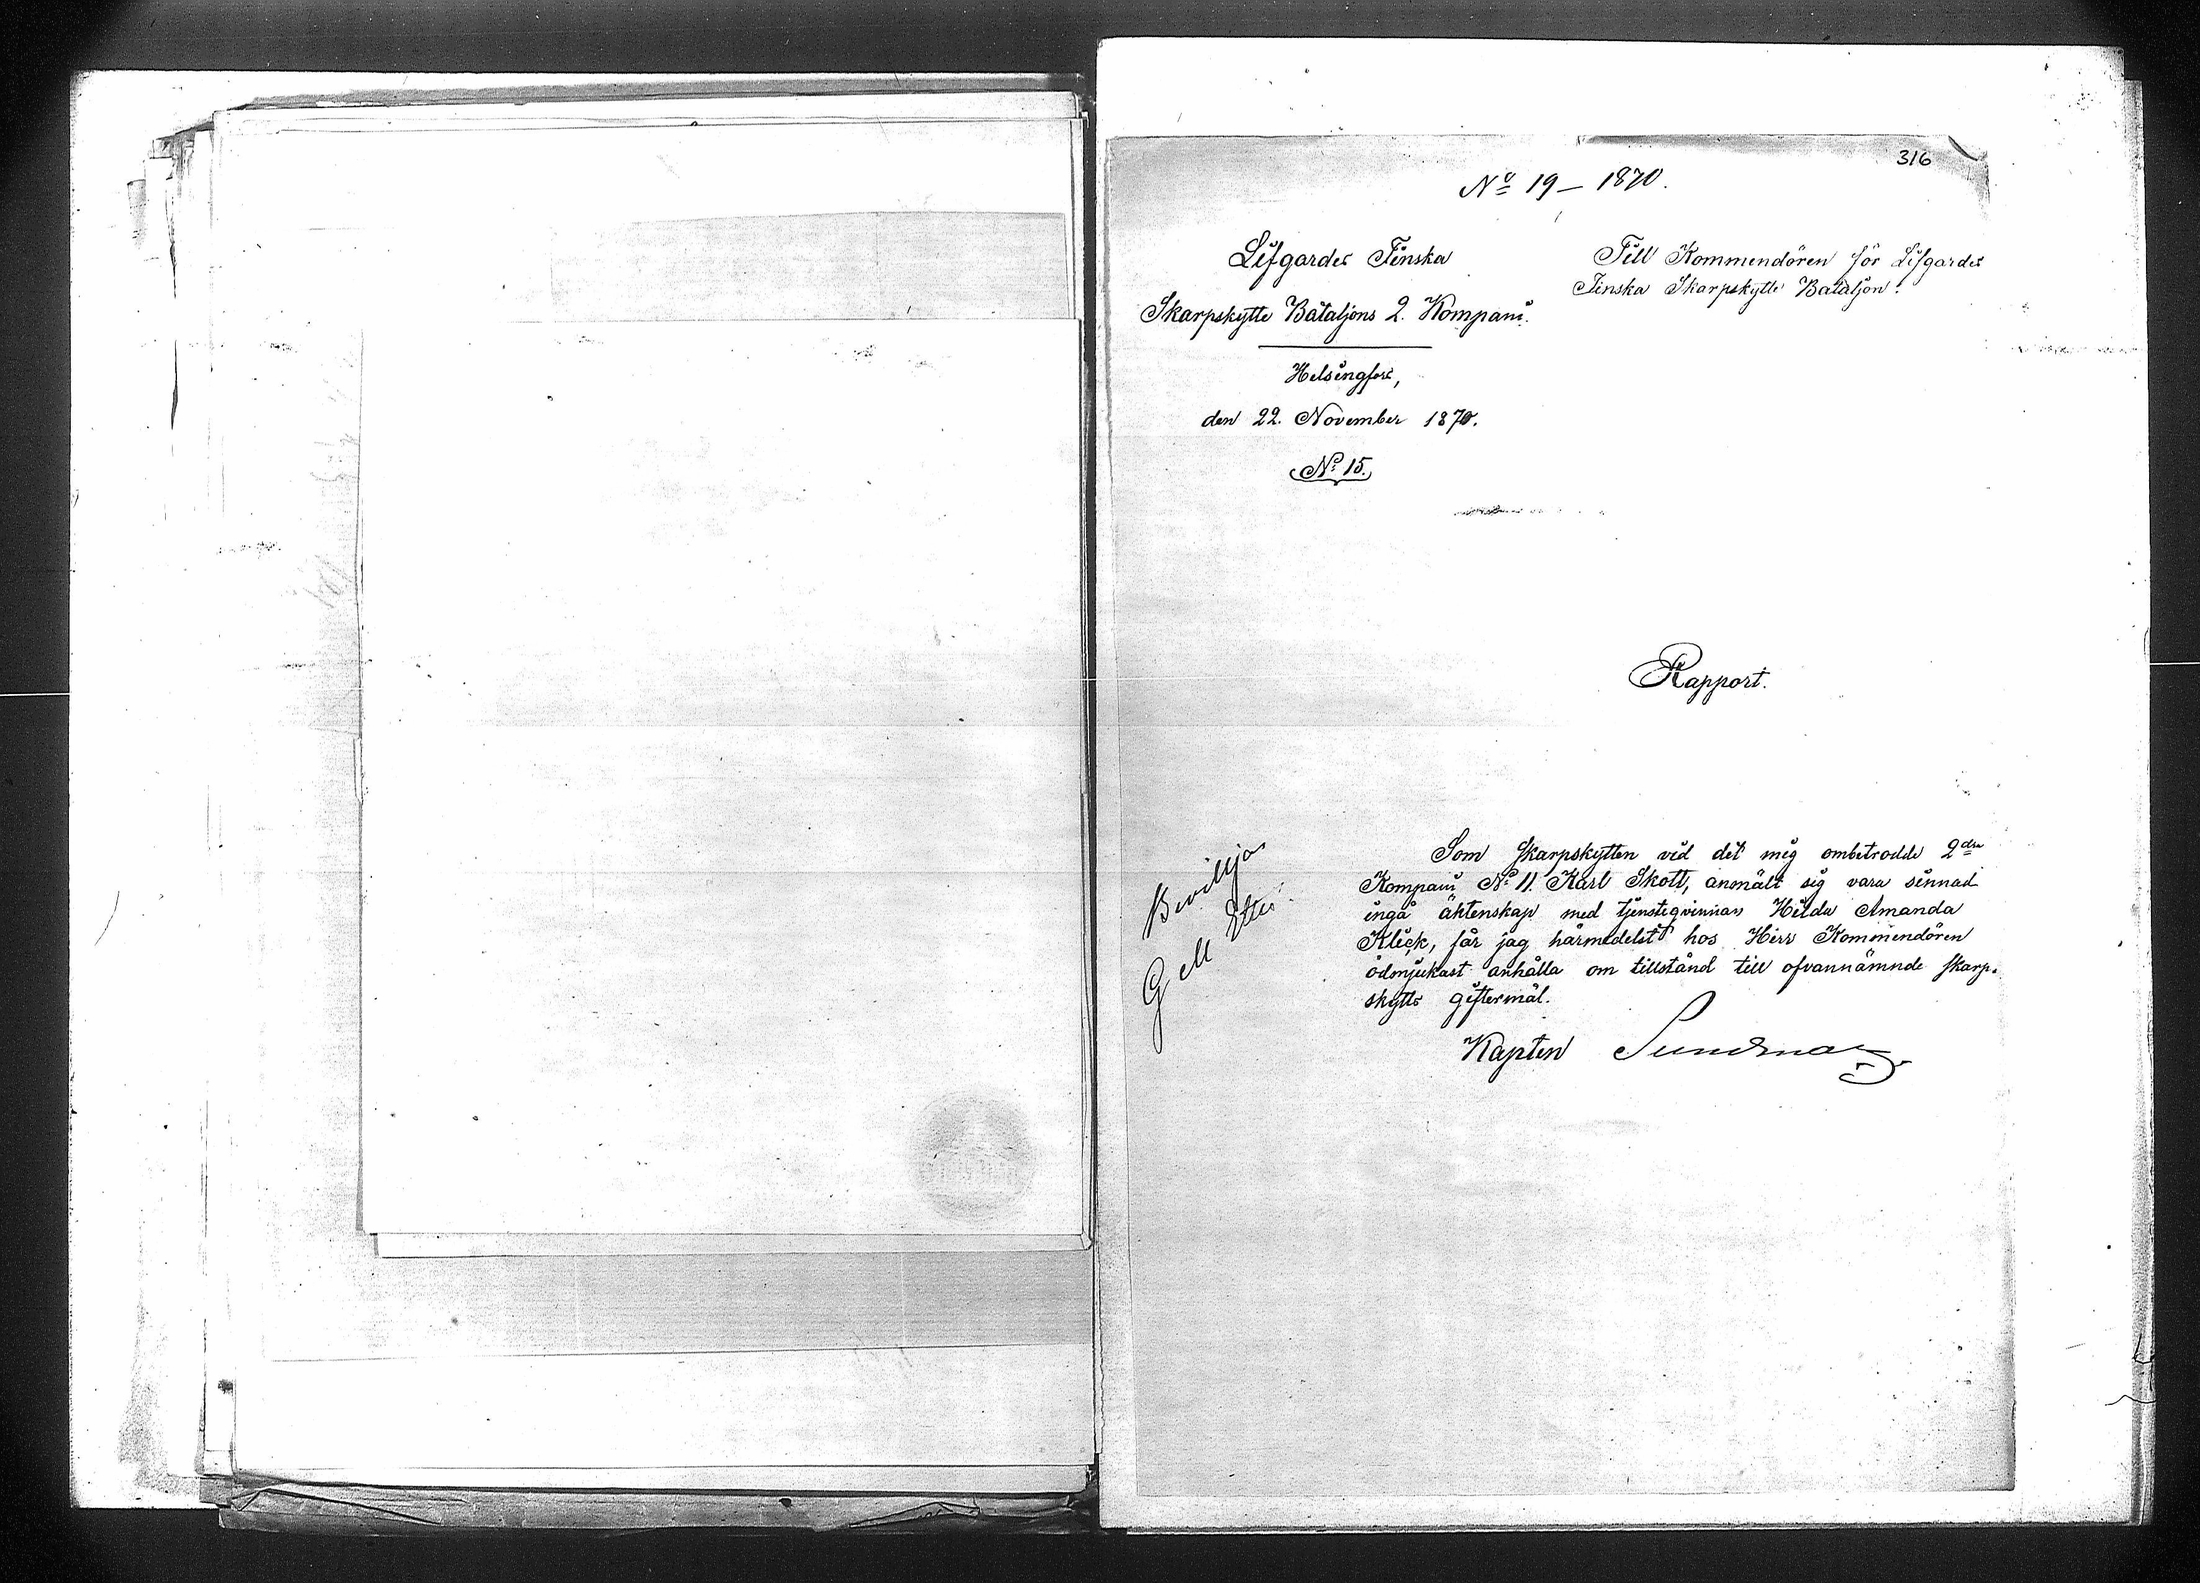 316
No 19 – 1870.
Lifgardes Finska
Skarpskytte Bataljons 2. Kompani.
Helsingfors,
den 22. November 1870.
No 15.
Till Kommendören för Lifgardes
Finska Skarpskytte Bataljon.
Rapport.
Som skarpskytten vid det mig ombetrodde 2dra
Kompani No 11. Karl Skott, anmält sig vara sinnad
ingå äktenskap med tjensteqvinnan Hilda Amanda
Klick, får jag härmedelst hos Herr Kommendören
ödmjukast anhålla om tillstånd till ofvannämnde skarp-
skytts giftermål.
Kapten Sundman
Beviljas
G